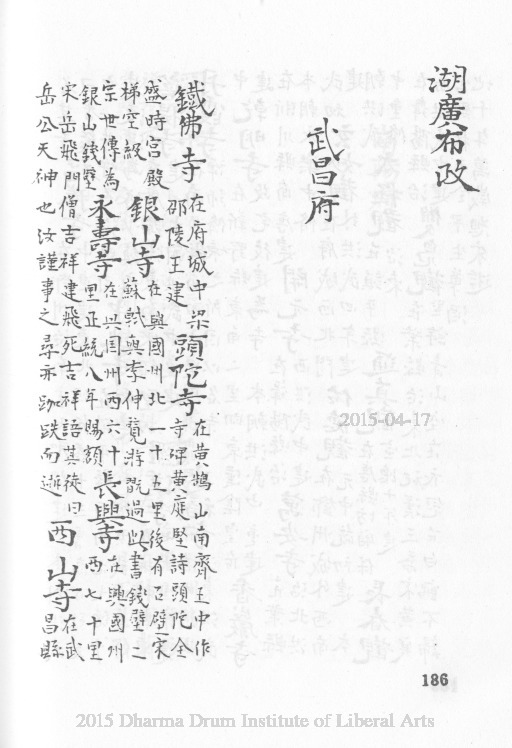 湖廣布政
武昌府
鐵佛寺 在府城中梁邵陵王建 頭陀寺 在黃鶴山南齊王中作寺碑黃庭堅詩頭陀全
盛時宮殿梯空級 銀山寺 在興國州北一十五里後有石壁宋蘇軾與李仲覽游戲過此書鐵壁二
宗世傳為銀山鐵壁 永壽寺 在興國州西六十里正統八年賜額 長興寺 在興國州西七十里
宋岳飛門僧吉祥建飛死吉祥語其徒曰岳公天神也汝謹事之尋亦跏趺而逝 西山寺 在武昌縣
2015-04-17
186
2015 Dharma Drum Institute of Liberal Arts